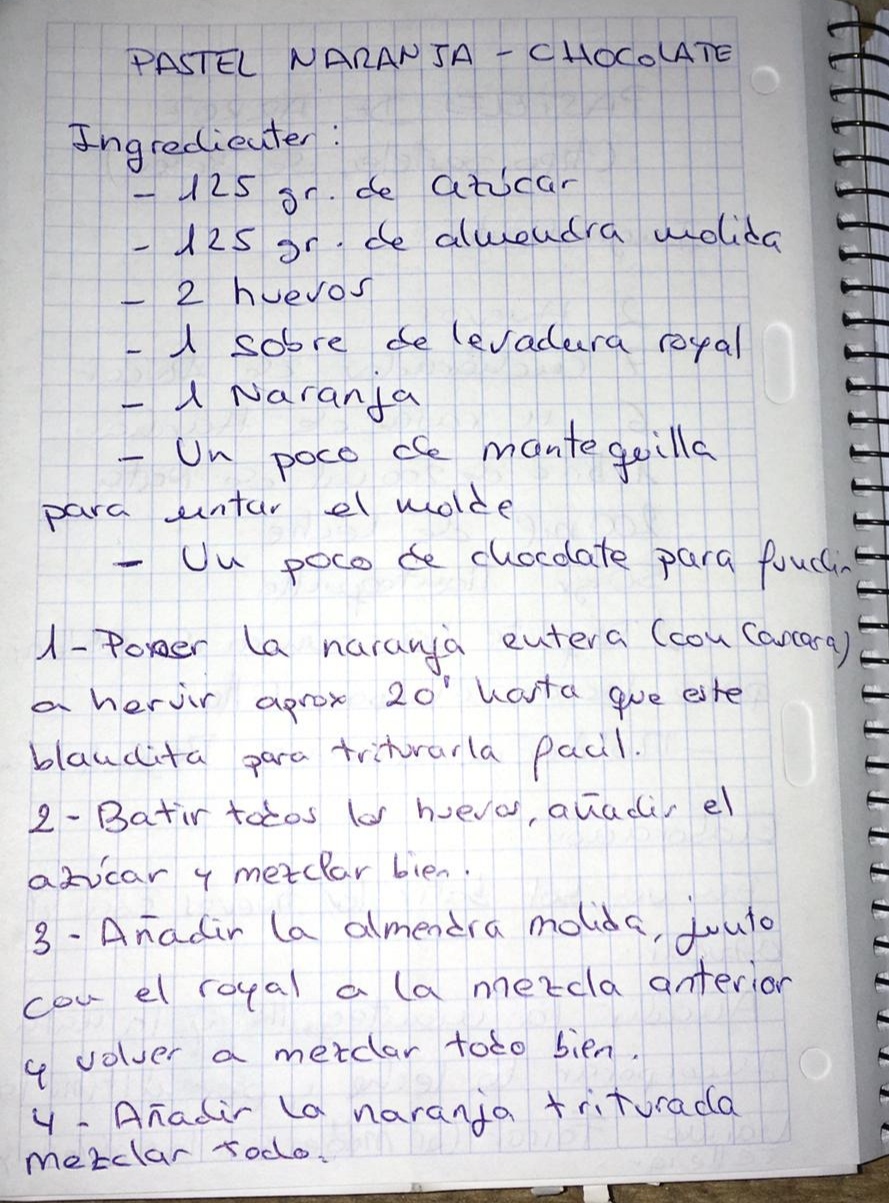 PASTEL NARANJA - CHOCOLATE
Ingredientes:
- 125 gr. de azúcar
- 125 gr. de almendra molida
- 2 huevos
- 1 sobre de levadura royal
- 1 Naranja
- Un poco de mantequilla
para untar el molde
- Un poco de chocolate para fundir
1 - Poner la naranja entera (con cascara)
a hervir aprox 20' hasta que este
blandita para triturarla facil.
2 - Batir todos los huevos, añadir el
azúcar y mezclar bien.
3 - Añadir la almendra molida, junto
con el royal a la mezcla anterior
y volver a mezclar todo bien.
4 - Añadir la naranja triturada
mezclar todo.